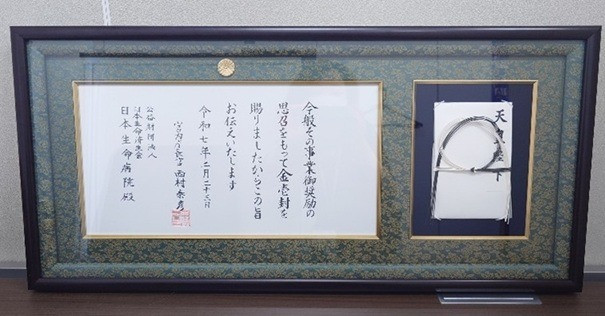 今般その事業御奨励の
思召をもって金壱封を
賜りましたからこの旨
お伝えいたします
令和七年二月二十三日
宮内庁長官 西村泰彦
公益財団法人
日本生命済生会
日本生命病院 殿
天皇陛下